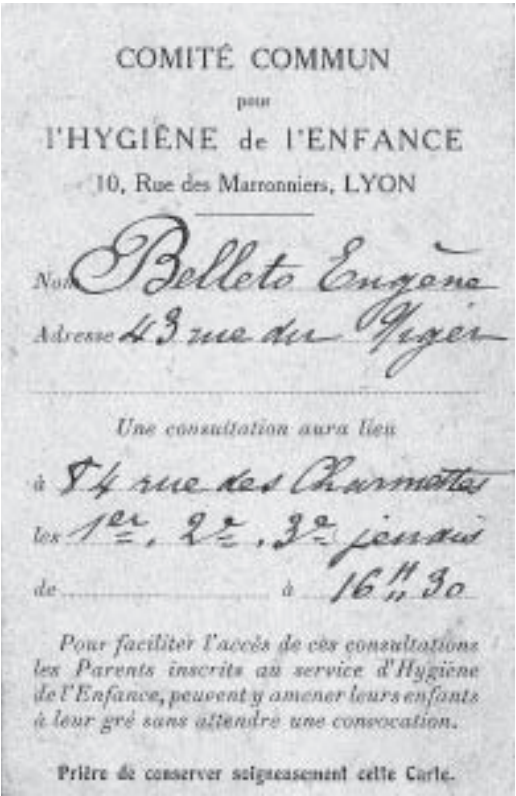 COMITÉ COMMUN
pour
l'HYGIÈNE de l'ENFANCE
10, Rue des Marronniers, LYON
Nom Belleto Eugène
Adresse 43 rue du Niger
Une consultation aura lieu
à 84 rue des Charmettes
les 1er, 2e, 3e jeudis
de à 16H30
Pour faciliter l'accès de ces consultations
les Parents inscrits au service d'Hygiène
de l'Enfance, peuvent y amener leurs enfants
à leur gré sans attendre une convocation.
Prière de conserver soigneusement cette Carte.